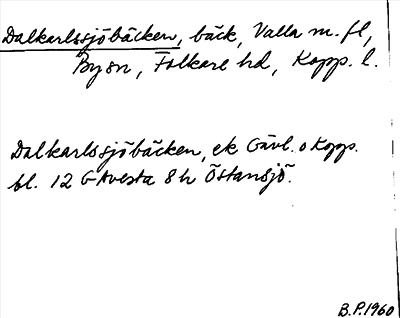 Dalkarlssjöbäcken, bäck, Valla m. fl,
By sn, Folkare hd, Kopp. l.
Dalkarlssjöbäcken, ek Gävl. o Kopp.
bl. 12 G Avesta 8 h Östansjö.
B.P. 1960